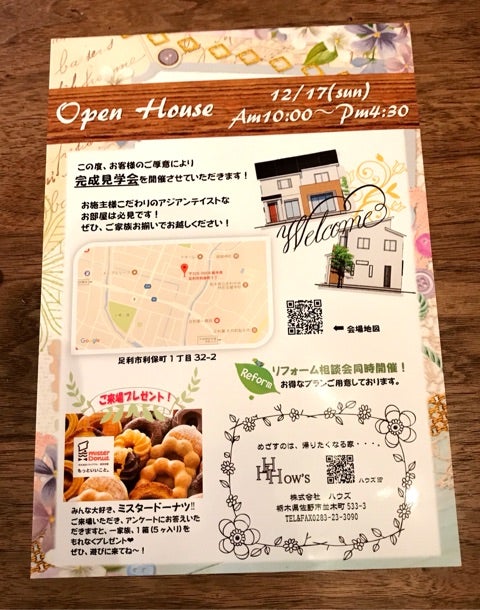 Open House
12/17(sun)
Am10:00~Pm4:30
この度、お客様のご厚意により
完成見学会を開催させていただきます!
お施主様こだわりのアジアンテイストな
お部屋は必見です!
ぜひ、ご家族お揃いでお越しください!
Welcome
Google
足利市利保町1丁目32-2
⬅ 会場地図
Reform
リフォーム相談会同時開催!
お得なプランご用意しております。
ご来場プレゼント!
mister Donut
もっといいこと。
みんな大好き、ミスタードーナツ!!
ご来場いただき、アンケートにお答えいた
だきますと、一家族、1箱(5ヶ入り)を
もれなくプレゼント❤
ぜひ、遊びに来てね~!
めざすのは、帰りたくなる家・・・・
How's
ハウズHP
株式会社 ハウズ
栃木県佐野市並木町533-3
TEL&FAX0283-23-3090